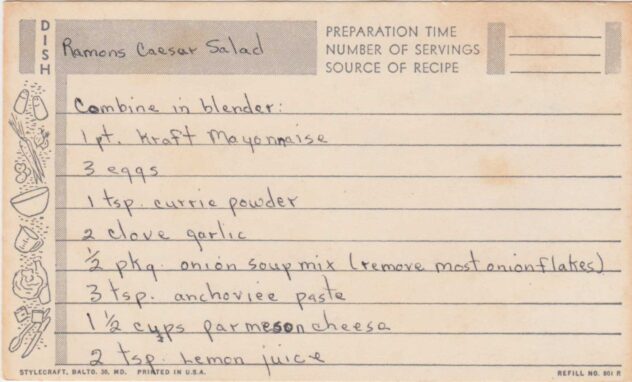 DISH
Ramons Caesar Salad
PREPARATION TIME
NUMBER OF SERVINGS
SOURCE OF RECIPE
Combine in blender:
1 pt. Kraft Mayonnaise
3 eggs
1 tsp. currie powder
2 clove garlic
1/2 pkg. onion soup mix (remove most onion flakes)
3 tsp. anchoviee paste
1 1/2 cups parmeson cheese
2 tsp. Lemon juice
STYLECRAFT, BALTO. 30, MD. PRINTED IN U.S.A.
REFILL NO. 801 R